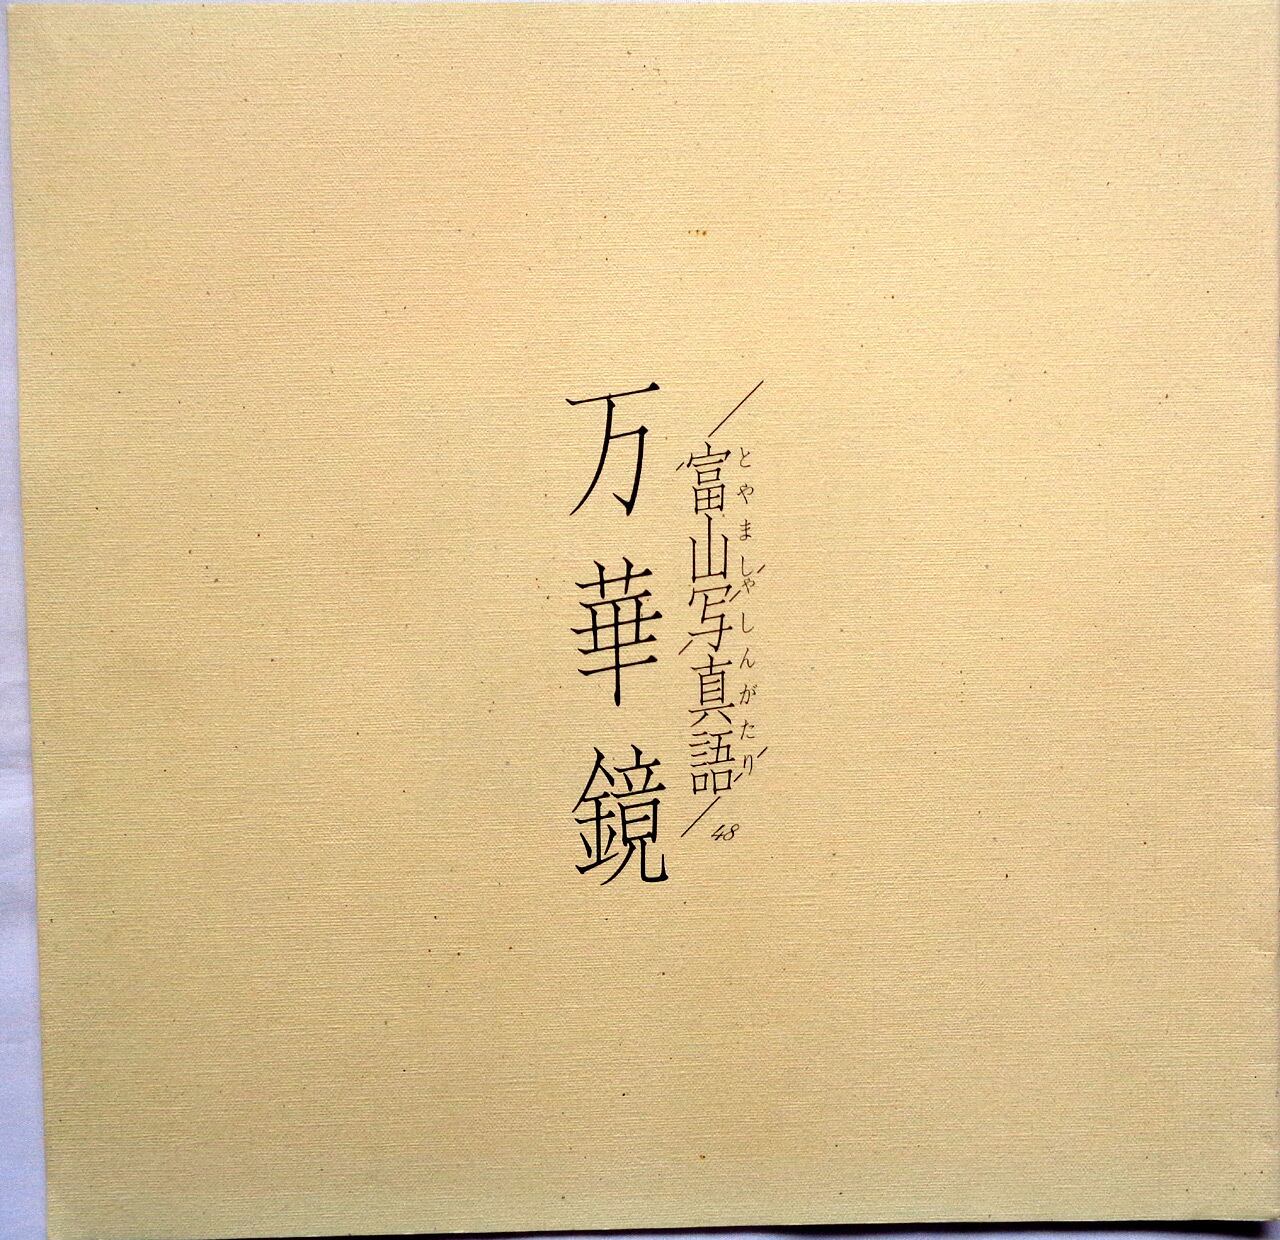 富山写真語
とやましゃしんがたり
48
万華鏡